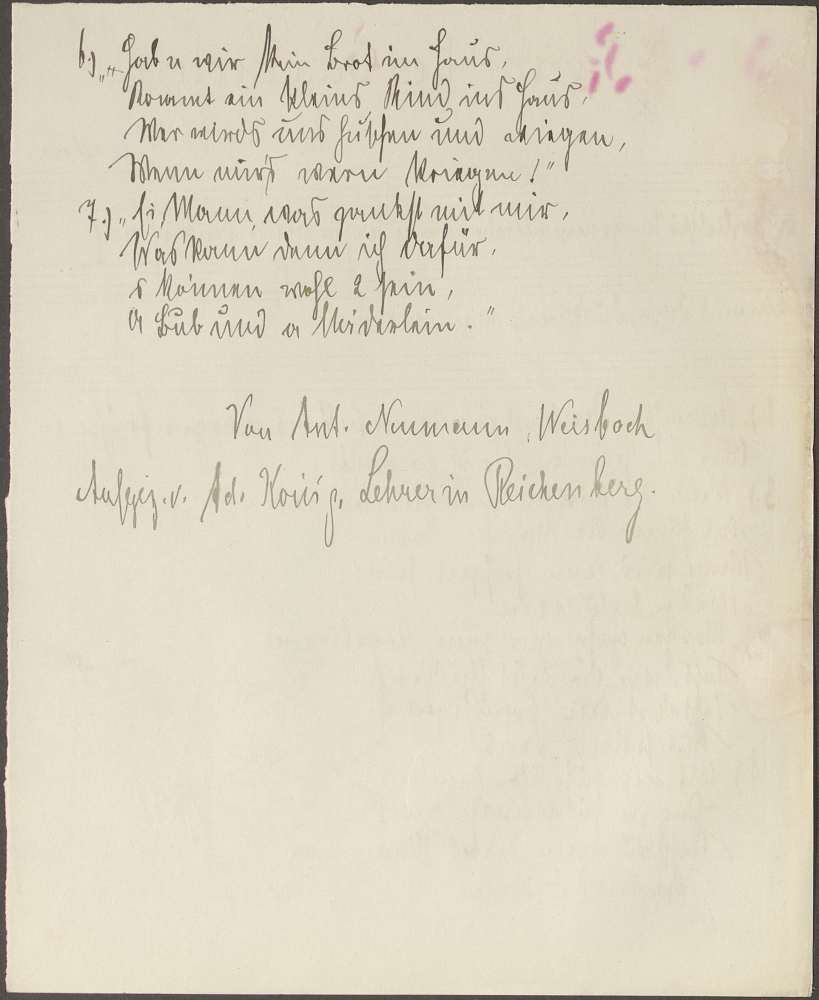 6.) „Hab'n wir kein Brot im Haus,
Kommt ein kleins Kind ins Haus,
Wer wirds uns hutschen und wiegen,
Wenn mir's wern kriegen!"
7.) „Ei, Mann, was zankst mit mir,
Was kann denn ich dafür,
s können wohl 2 sein,
A Bub und a Maiderlein."
Von Ant. Neumann, Weisbach
Aufgez. v. Ad. König, Lehrer in Reichenberg.